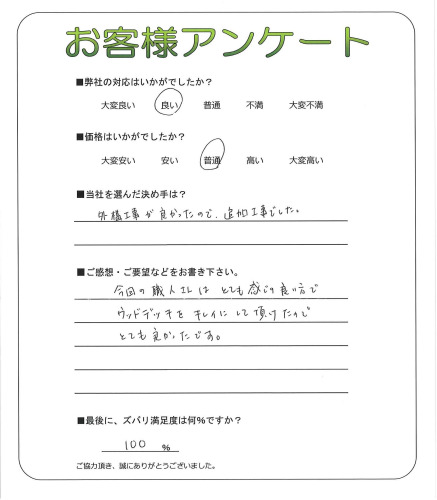 お客様アンケート
■弊社の対応はいかがでしたか？
大変良い 良い 普通 不満 大変不満
■価格はいかがでしたか？
大変安い 安い 普通 高い 大変高い
■当社を選んだ決め手は？
外構工事が良かったので、追加工事でした。
■ご感想・ご要望などをお書き下さい。
今回の職人さんはとても感じの良い方で
ウッドデッキをキレイにして頂けたので
とても良かったです。
■最後に、ズバリ満足度は何％ですか？
100 ％
ご協力頂き、誠にありがとうございました。